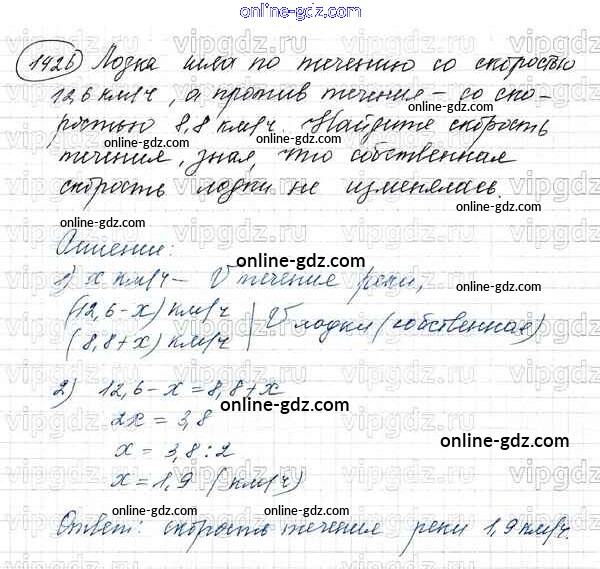 online-gdz.com
1426 Лодка шла по течению со скоростью
12,6 км/ч, а против течения – со ско-
ростью 8,8 км/ч. Найдите скорость
течения, зная, что собственная
скорость лодки не изменялась.
Решение:
1) x км/ч – V течение реки,
(12,6 - x) км/ч
(8,8 + x) км/ч | V лодки (собственная)
2) 12,6 - x = 8,8 + x
2x = 3,8
x = 3,8 : 2
x = 1,9 (км/ч)
Ответ: скорость течения реки 1,9 км/ч.